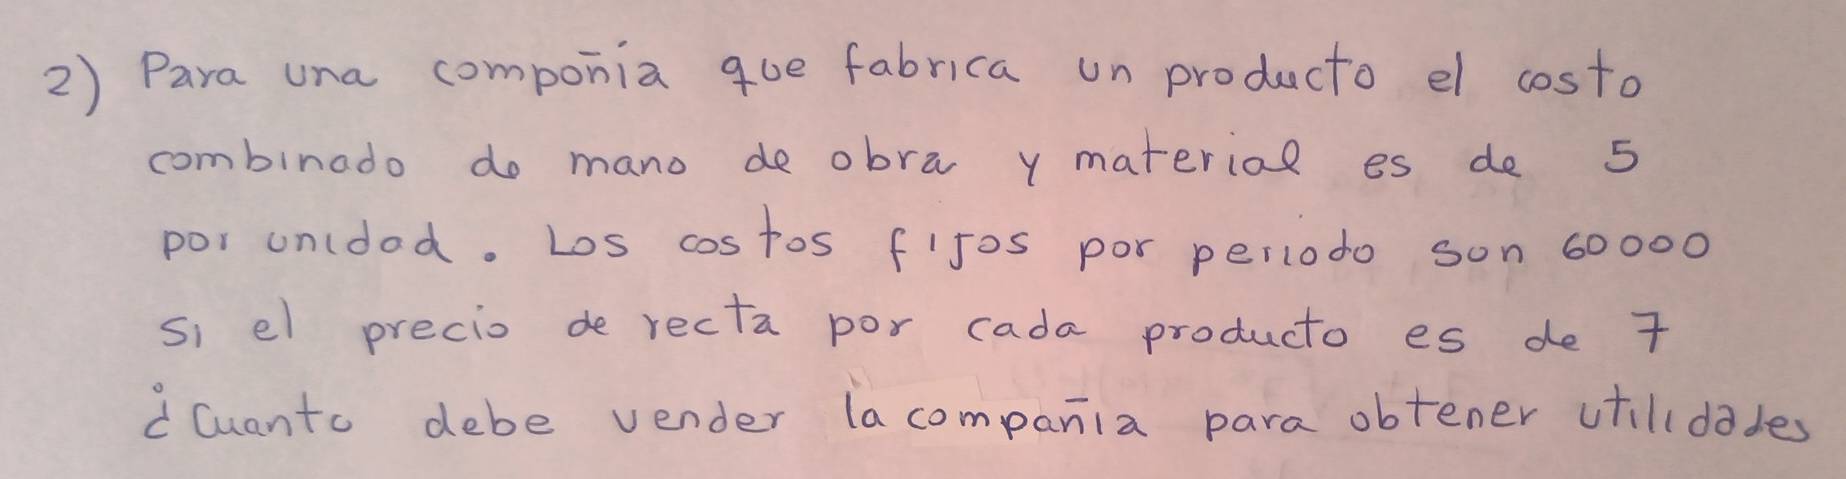 2) Para una compoñía que fabrica un producto el costo
combinado de mano de obra y material es de 5
por unidad. Los costos fijos por periodo son 60000
si el precio de recta por cada producto es de 7
¿Cuanto debe vender la compañia para obtener utilidades